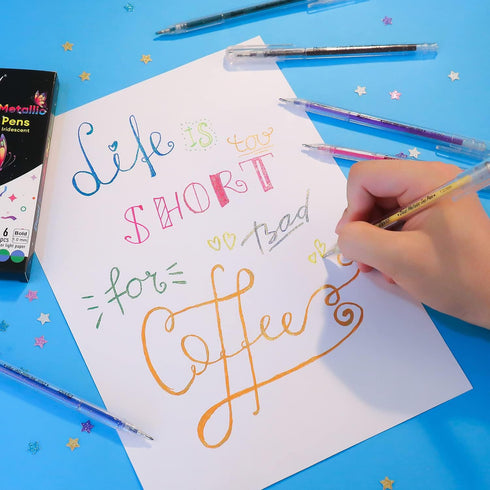 Life is too
SHORT
for Bad
Coffee
Metallic
Pens
Iridescent
6
pcs
Bold
1.0 mm